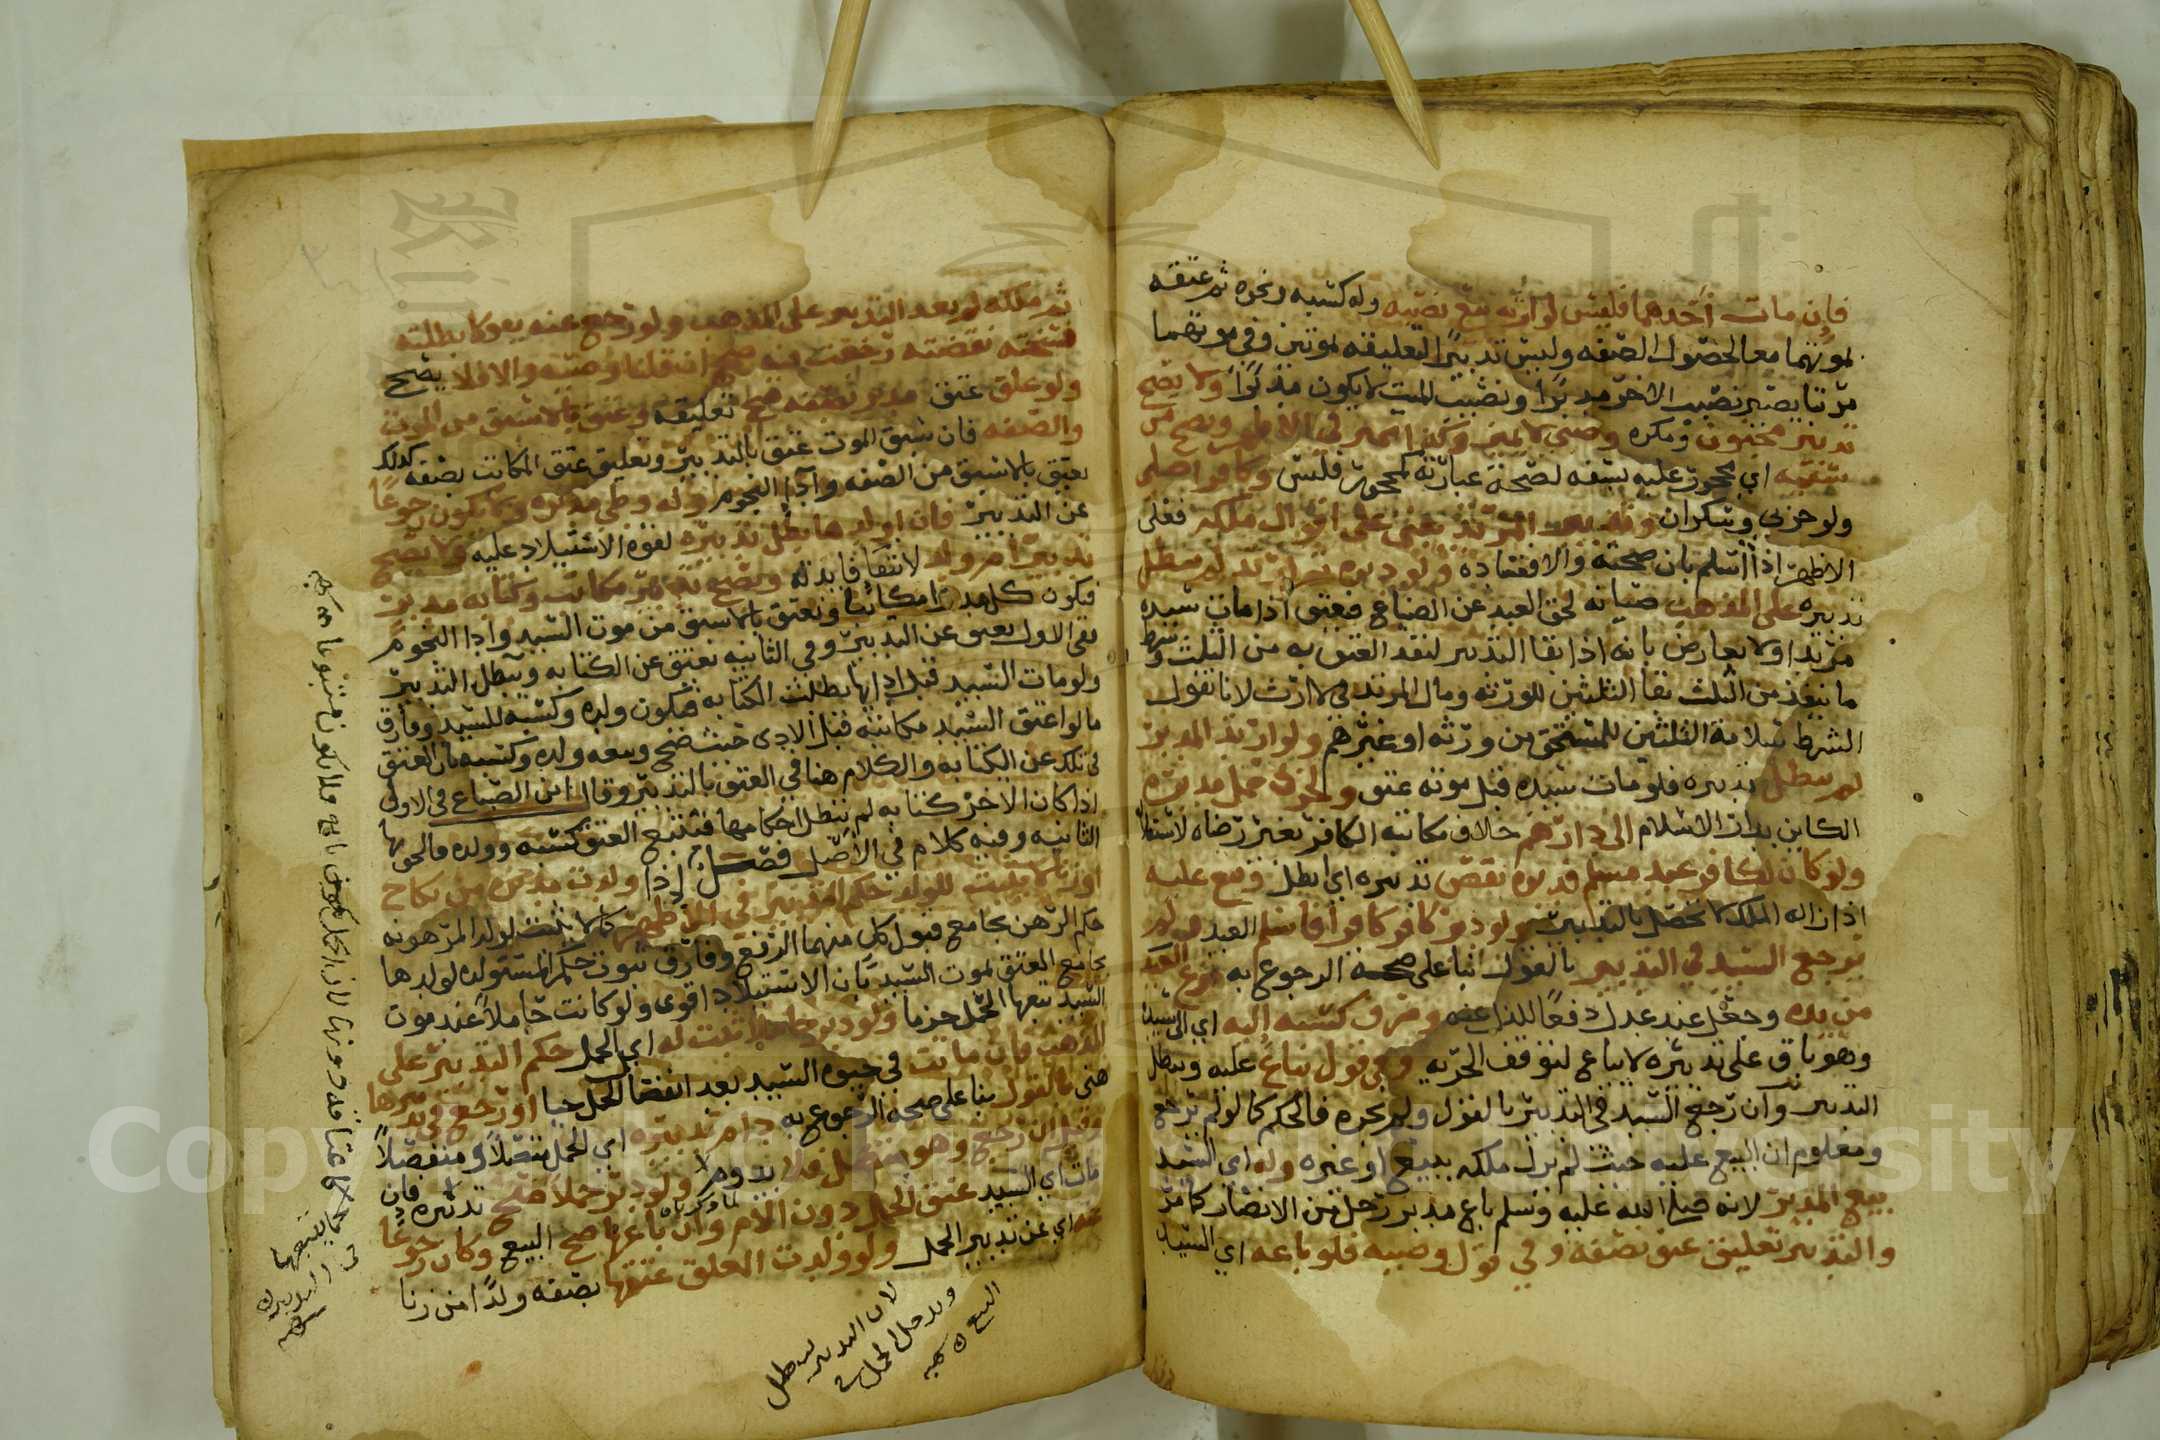 فإن مات أحدهما فليس لوارثه بيع نصيبه وله كسبه ونحوه ثم عتقه
لموتهما معا لحصول الصفه وليس تدبيرا لتعليقه لموتين وفي موتهما
مرتبا يصير نصيب الاخر مدبرا ونصيب الميت لا يكون مدبرا ولا يصح
تدبير مجنون ومكره وصبي لا يميز وكذا المميز في الاظهر ويصح من
سفيه اي محجور عليه بسفه لصحة عبارته كمحجور فلس وكافر اصلي
ولو حربي وسكران وتدبير المرتد يبنى على اقوال ملكه فعلى
الاظهر اذا اسلم بان صحته والا ففساده ولو دبر ثم ارتد لم يبطل
تدبيره على المذهب صيانة لحق العبد عن الضياع فيعتق اذا مات سيده
مرتدا ولا يعارض بانه اذا بقا التدبير لنفذ العتق به من الثلث وشرط
ما ينفذ من الثلث بقا الثلثين للورثه ومال المرتد في لا ارث لانا نقول
الشرط سلامة الثلثين للمستحق من ورثه او غيرهم ولو ارتد المدبر
لم يبطل تدبيره فلو مات سيده قبل موته عتق ولحربي حمل مدبره
الكاين بدار الاسلام الى دارهم خلاف مكاتبه الكافر بغير رضاه لاستقلاله
ولو كان لكافر عبد مسلم فدبره نقض تدبيره اي ابطل وبيع عليه
اذ ازاله الملك لا تحصل بالتدبير ولو دبر كافر كافرا فاسلم العبد ولم
يرجع السيد في التدبير بالقول بنا على صحة الرجوع به نزع العبد
من يده وجعل عند عدل دفعا للذل عنه وصرف كسبه اليه اي الى سيده
وهو باق على تدبيره لا يباع لتوقف الحريه وفي قول يباع عليه ويبطل
التدبير وان رجع السيد في التدبير بالقول ولم نجزه فالحكم كما لو لم يرجع
ومعلوم ان البيع عليه حيث لم يزل ملكه ببيع او غيره وله اي السيد
بيع المدبر لانه صلى الله عليه وسلم باع مدبر رجل من الانصار كما مر
والتدبير تعليق عتق بصفه وفي قول وصيه فلو باعه اي السيد
ثم ملكه لم يعد التدبير على المذهب ولو رجع عنه بقول كابطلته
فسخته نقضته رجعت فيه صح ان قلنا وصيه والا فلا يصح
ولو علق عتق مدبر بصفه صح تعليقه وعتق بالاسبق من الموت
والصفه فان سبق الموت عتق بالتدبير وتعليق عتق المكاتب بصفه كذلك
يعتق بالاسبق من الصفه واداء النجوم وله وطى مدبره ولا يكون رجوعا
عن التدبير فان اولدها بطل تدبيره لقوة الاستيلاد عليه ولا يصح
تدبير ام ولد لانتفا فايدته ويصح تدبير مكاتب وكتابه مدبر
فيكون كل مدبرا مكاتبا ويعتق بالاسبق من موت السيد واداء النجوم
ففي الاول يعتق عن التدبير وفي الثانيه يعتق عن الكتابه ويبطل التدبير
ولو مات السيد قبل ادائها بطلت الكتابه فيكون ولده وكسبه للسيد وفارق
ما لو اعتق السيد مكاتبه قبل الادى حيث صح وتبعه ولده وكسبه بان العتق
في تلك عن الكتابه والكلام هنا في العتق بالتدبير وقال ابن الصباغ في الاولى
اذا كان الاخر كتابه لم تبطل احكامها فيتبع العتق كسبه وولده والحق بها
الثانيه وفيه كلام في الاصل فصل اذا ولدت مدبره من نكاح
او زنا لا يثبت للولد حكم التدبير في الاظهر كما لا يثبت لولد المرهونه
حكم الرهن بجامع قبول كل منهما الرفع وفارق ثبوت حكم المستولده لولدها
بجامع العتق لموت السيد بان الاستيلاد اقوى ولو كانت حاملا عند موت
السيد تبعها الحمل جزما ولو دبر حاملا ثبت له اي الحمل حكم التدبير على
المذهب فان ماتت في حيوة السيد بعد انفصال الحمل حيا او رجع في تدبيرها
هي بالقول بنا على صحة الرجوع به دام تدبيره اي الحمل متصلا ومنفصلا
وقيل ان رجع وهو متصل فلا يدوم ولو دبر حملا صح تدبيره فان
مات اي السيد عتق الحمل دون الام وان باعها صح البيع وكان رجوعا
عنه اي عن تدبير الحمل ولو ولدت المعلق عتقها بصفه ولدا من زنا
لان التدبير يبطل
ويدخل الحمل في
البيع